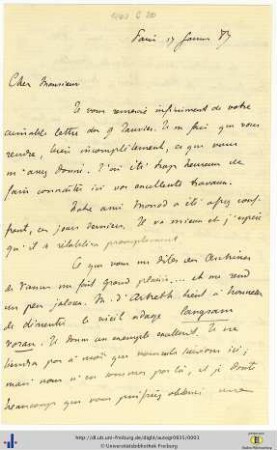 Paris, 17 Janvier 87
Cher Monsieur
Je vous remercie infiniment de votre
aimable lettre du 9 Janvier. Je ne fais que vous
rendre, bien incomplètement, ce que vous
m'avez donné. J'ai été trop heureux de
faire connaître ici vos excellents travaux.
Notre ami Monod a été assez souf-
frant, ces jours derniers. Il va mieux et j'espère
qu'il se rétablira promptement
Ce que vous me dites des Archives
de Vienne me fait grand plaisir... et me rend
un peu jaloux. M. d'Arneth tient à honneur
de démentir le vieil adage langsam
voran. Il donne un exemple excellent. Il ne
tiendra pas à moi que nous
mais nous n'en sommes pas là, et je doute
beaucoup que vous puissiez obtenir une
http://dl.ub.uni-freiburg.de/diglit/autogr0031/0001
© Universitätsbibliothek Freiburg